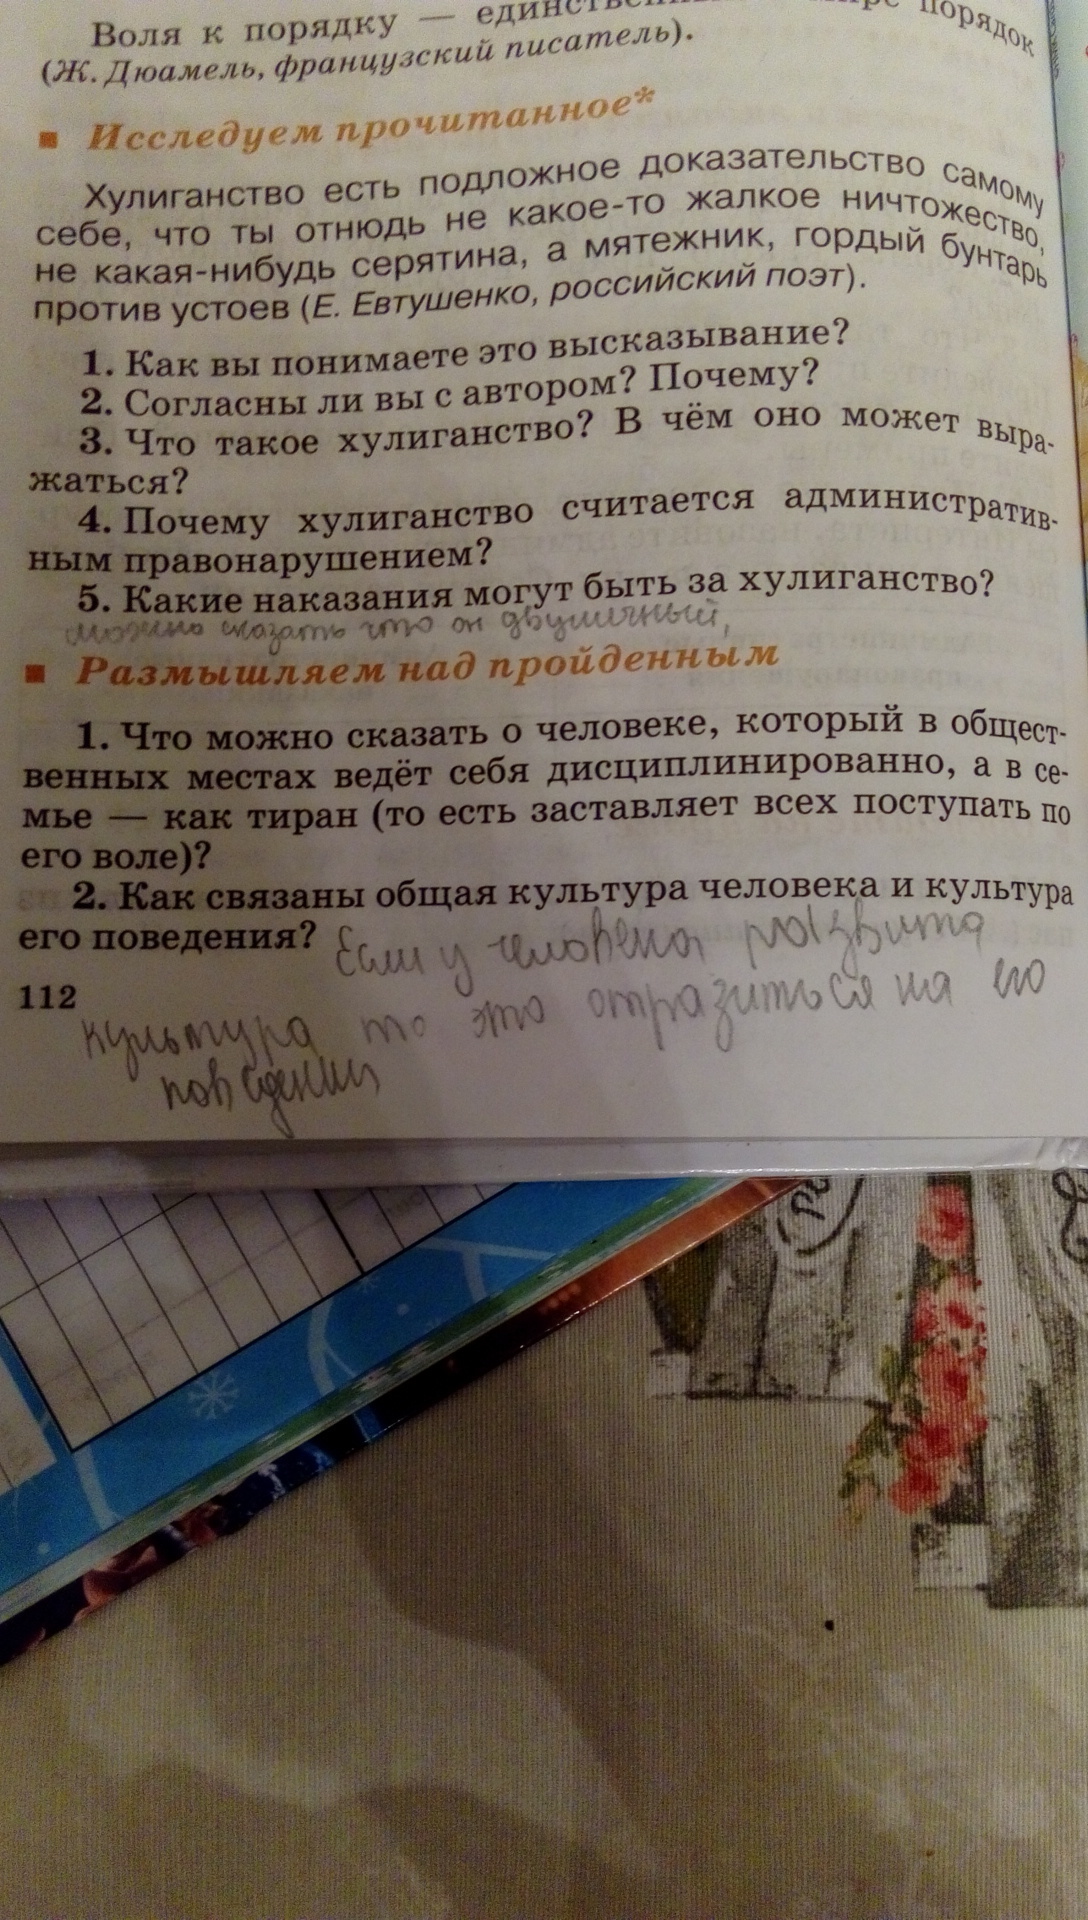 Воля к порядку — единственный порядок
(Ж. Дюамель, французский писатель).
Исследуем прочитанное*
Хулиганство есть подложное доказательство самому
себе, что ты отнюдь не какое-то жалкое ничтожество,
не какая-нибудь серятина, а мятежник, гордый бунтарь
против устоев (Е. Евтушенко, российский поэт).
1. Как вы понимаете это высказывание?
2. Согласны ли вы с автором? Почему?
3. Что такое хулиганство? В чём оно может выра-
жаться?
4. Почему хулиганство считается административ-
ным правонарушением?
5. Какие наказания могут быть за хулиганство?
можно сказать что он двуличный,
Размышляем над пройденным
1. Что можно сказать о человеке, который в общест-
венных местах ведёт себя дисциплинированно, а в се-
мье — как тиран (то есть заставляет всех поступать по
его воле)?
2. Как связаны общая культура человека и культура
его поведения? Если у человека развита
112
культура то это отразиться на его
поведении